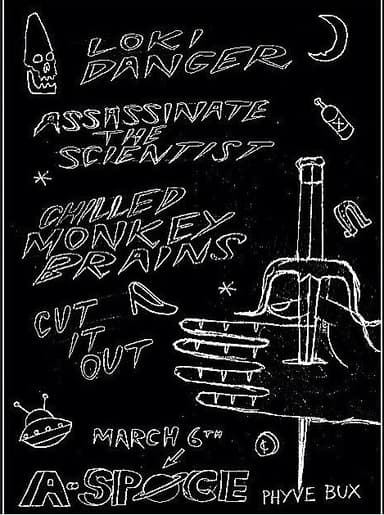 LOKI
DANGER
ASSASSINATE
THE
SCIENTIST
CHILLED
MONKEY
BRAINS
CUT
IT
OUT
MARCH 6TH
A-SPACE
PHYVE BUX